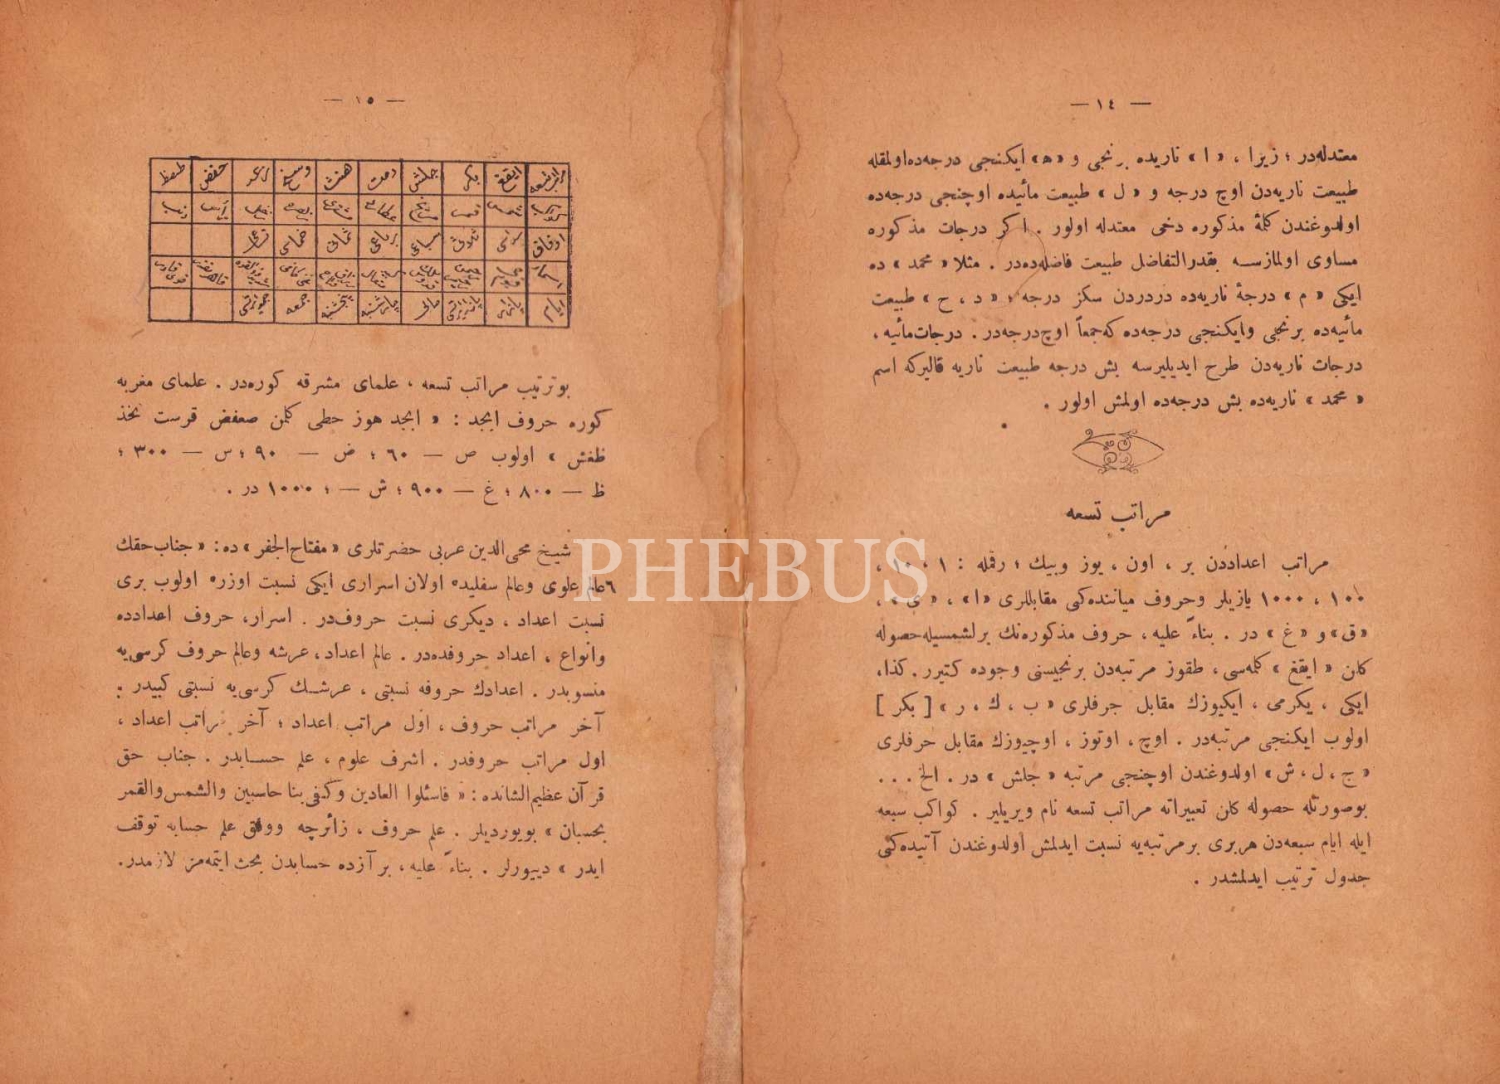 — ١٤ —
معتدله‌در ؛ زیرا ، « ا » ناریده برنجی و « ه » ایکنجی درجه‌ده اولمقله
طبیعت ناریه‌دن اوچ درجه و « ل » طبیعت مائیه‌ده اوچنجی درجه‌ده
اولدوغندن کلمهٔ مذکوره دخی معتدله اولور . اکر درجات مذکوره
مساوی اولمازسه بقدرالتفاضل طبیعت فاضله‌ده‌در . مثلا « محمد » ده
ایکی « م » درجهٔ ناریه‌ده دردردن سکز درجه ؛ « د ، ح » طبیعت
مائیه‌ده برنجی وایکنجی درجه‌ده که جمعاً اوچ درجه‌در . درجات مائیه ،
درجات ناریه‌دن طرح ایدیلیرسه بش درجه طبیعت ناریه قالیرکه اسم
« محمد » ناریه‌ده بش درجه‌ده اولمش اولور .
مراتب تسعه
مراتب اعداددن بر ، اون ، یوز وبیك ؛ رقمله : ١ ، ١٠ ،
١٠٠ ، ١٠٠٠ یازیلر وحروف میاننده‌کی مقابللری « ا » ، « ی » ،
« ق » و « غ » در . بناءً علیه ، حروف مذکوره‌نك برلشمسیله حصوله
کلن « ایقغ » کلمه‌سی ، طقوز مرتبه‌دن برنجیسنی وجوده کتیرر . کذا ،
ایکی ، یکرمی ، ایکیوزك مقابل حرفلری « ب ، ك ، ر » [ بکر ]
اولوب ایکنجی مرتبه‌در . اوچ ، اوتوز ، اوچیوزك مقابل حرفلری
« ج ، ل ، ش » اولدوغندن اوچنجی مرتبه « جلش » در . الخ ...
بوصورتله حصوله کلن تعبیراته مراتب تسعه نام ویریلیر . کواکب سبعه
ایله ایام سبعه‌دن هربری برمرتبه‌یه نسبت ایدلمش اولدوغندن آتیده‌کی
جدول ترتیب ایدلمشدر .
— ١٥ —
ایقغ بکر جلش دمت هنث وسخ زعذ حفض طصظ
بوترتیب مراتب تسعه ، علمای مشرقه کوره‌در . علمای مغربه
کوره حروف ابجد : « ابجد هوز حطی کلمن صعفض قرست ثخذ
ظغش » اولوب ص — ٦٠ ؛ ض — ٩٠ ؛ س — ٣٠٠ ؛
ظ — ٨٠٠ ؛ غ — ٩٠٠ ؛ ش — ؛ ١٠٠٠ در .
شیخ محی‌الدین عربی حضرتلری « مفتاح‌الجفر » ده : « جناب حقك
عالم علوی وعالم سفلیده اولان اسراری ایکی نسبت اوزره اولوب بری
نسبت اعداد ، دیکری نسبت حروف‌در . اسرار ، حروف اعدادده
وانواع ، اعداد حروفده‌در . عالم اعداد ، عرشه وعالم حروف کرسی‌یه
منسوبدر . اعدادك حروفه نسبتی ، عرشك کرسی‌یه نسبتی کبیدر .
آخر مراتب حروف ، اول مراتب اعداد ؛ آخر مراتب اعداد ،
اول مراتب حروفدر . اشرف علوم ، علم حسابدر . جناب حق
قرآن عظیم‌الشانده : « فاسئلوا العادین وکفی بنا حاسبین والشمس والقمر
بحسبان » بویوردیلر . علم حروف ، زائرجه ووفق علم حسابه توقف
ایدر » دییورلر . بناءً علیه ، بر آزده حسابدن بحث ایتمه‌مز لازمدر .
PHEBUS